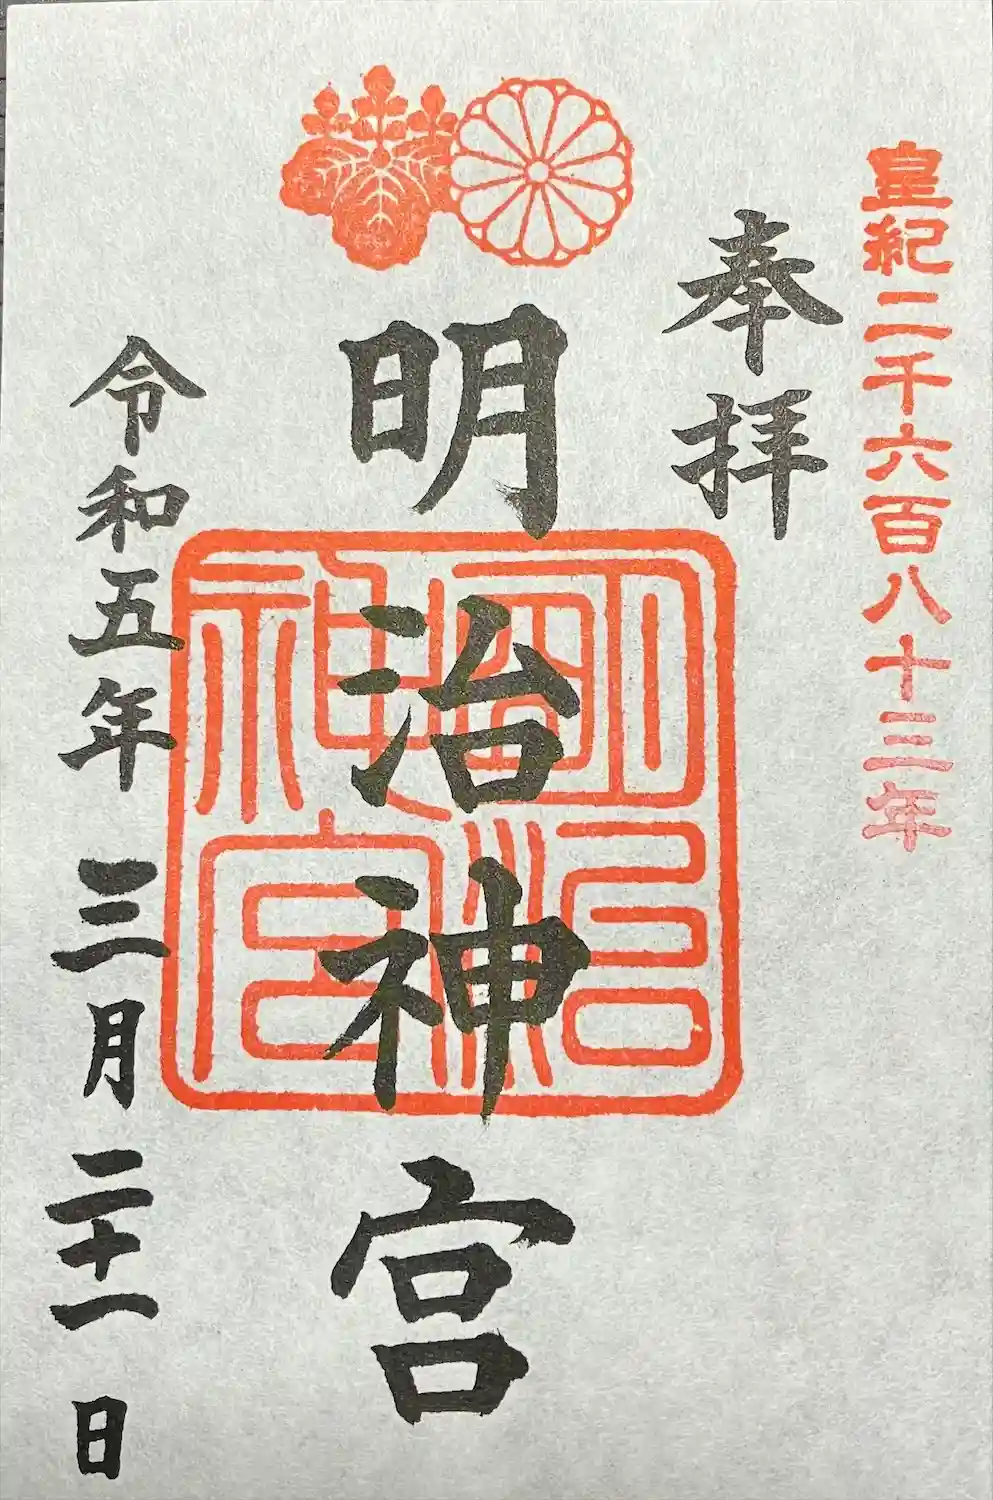 皇紀二千六百八十三年
奉拝
明治神宮
明治神宮
令和五年三月二十一日